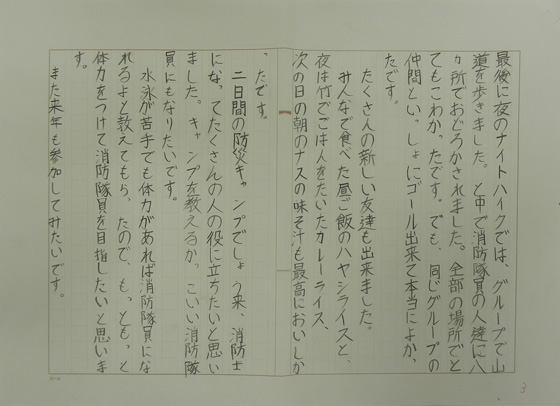 最後に夜のナイトハイクでは、グループで山
道を歩きました。と中で消防隊員の人達に八
ヵ所でおどろかされました。全部の場所でと
てもこわかったです。でも、同じグループの
仲間といっしょにゴール出来て本当によかっ
たです。
たくさんの新しい友達も出来ました。
みんなで食べた昼ご飯のハヤシライスと、
夜は竹でごはんをたいたカレーライス、
次の日の朝のナスの味そ汁も最高においしか
ったです。
二日間の防災キャンプでしょう来、消防士
になってたくさんの人の役に立ちたいと思い
ました。キャンプを教えるかっこいい消防隊
員にもなりたいです。
水泳が苦手でも体力があれば消防隊員にな
れるよと教えてもらったので、もっともっと
体力をつけて消防隊員を目指したいと思いま
す。
また来年も参加してみたいです。
3